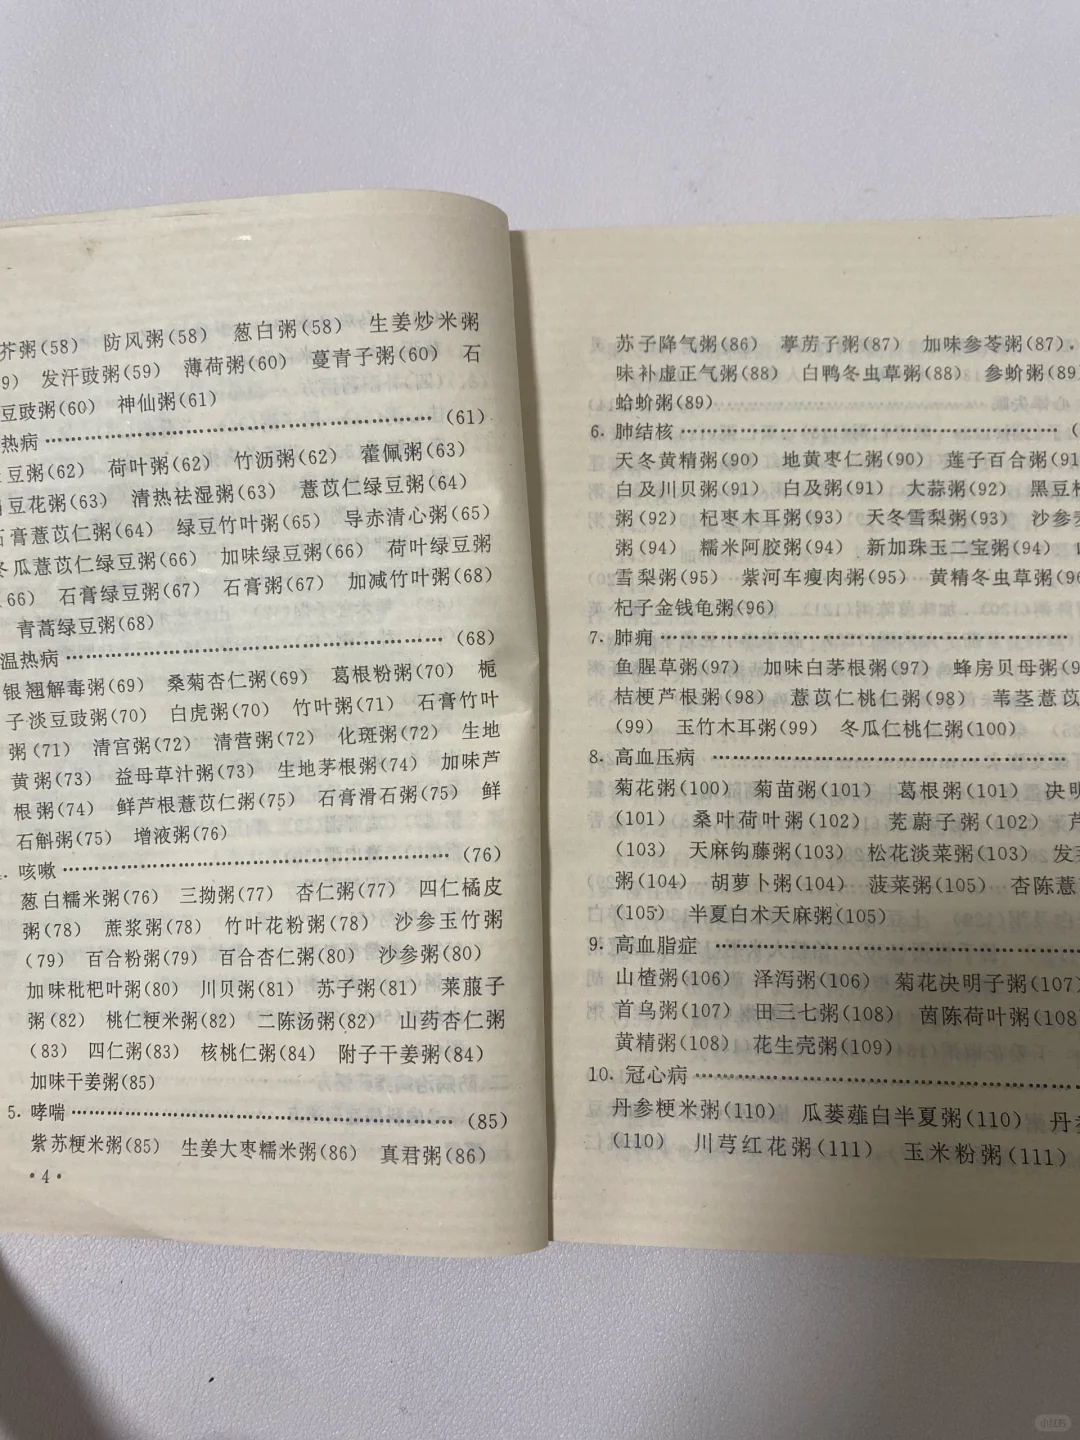 芥粥(58) 防风粥(58) 葱白粥(58) 生姜炒米粥
9) 发汗豉粥(59) 薄荷粥(60) 蔓青子粥(60) 石
豆豉粥(60) 神仙粥(61)
热病……………………………………(61)
豆粥(62) 荷叶粥(62) 竹沥粥(62) 藿佩粥(63)
豆花粥(63) 清热祛湿粥(63) 薏苡仁绿豆粥(64)
石膏薏苡仁粥(64) 绿豆竹叶粥(65) 导赤清心粥(65)
冬瓜薏苡仁绿豆粥(66) 加味绿豆粥(66) 荷叶绿豆粥
(66) 石膏绿豆粥(67) 石膏粥(67) 加减竹叶粥(68)
青蒿绿豆粥(68)
温热病……………………………………(68)
银翘解毒粥(69) 桑菊杏仁粥(69) 葛根粉粥(70) 栀
子淡豆豉粥(70) 白虎粥(70) 竹叶粥(71) 石膏竹叶
粥(71) 清宫粥(72) 清营粥(72) 化斑粥(72) 生地
黄粥(73) 益母草汁粥(73) 生地茅根粥(74) 加味芦
根粥(74) 鲜芦根薏苡仁粥(75) 石膏滑石粥(75) 鲜
石斛粥(75) 增液粥(76)
咳嗽……………………………………(76)
葱白糯米粥(76) 三拗粥(77) 杏仁粥(77) 四仁橘皮
粥(78) 蔗浆粥(78) 竹叶花粉粥(78) 沙参玉竹粥
(79) 百合粉粥(79) 百合杏仁粥(80) 沙参粥(80)
加味枇杷叶粥(80) 川贝粥(81) 苏子粥(81) 莱菔子
粥(82) 桃仁粳米粥(82) 二陈汤粥(82) 山药杏仁粥
(83) 四仁粥(83) 核桃仁粥(84) 附子干姜粥(84)
加味干姜粥(85)
5. 哮喘……………………………………(85)
紫苏粳米粥(85) 生姜大枣糯米粥(86) 真君粥(86)
·4·
苏子降气粥(86) 葶苈子粥(87) 加味参苓粥(87)
味补虚正气粥(88) 白鸭冬虫草粥(88) 参蚧粥(89
蛤蚧粥(89)
6. 肺结核……………………………………(
天冬黄精粥(90) 地黄枣仁粥(90) 莲子百合粥(91
白及川贝粥(91) 白及粥(91) 大蒜粥(92) 黑豆
粥(92) 杞枣木耳粥(93) 天冬雪梨粥(93) 沙参
粥(94) 糯米阿胶粥(94) 新加珠玉二宝粥(94)
雪梨粥(95) 紫河车瘦肉粥(95) 黄精冬虫草粥(96
杞子金钱龟粥(96)
7. 肺痈……………………………………
鱼腥草粥(97) 加味白茅根粥(97) 蜂房贝母粥(9
桔梗芦根粥(98) 薏苡仁桃仁粥(98) 苇茎薏苡
(99) 玉竹木耳粥(99) 冬瓜仁桃仁粥(100)
8. 高血压病……………………………………
菊花粥(100) 菊苗粥(101) 葛根粥(101) 决明
(101) 桑叶荷叶粥(102) 茺蔚子粥(102) 芦
(103) 天麻钩藤粥(103) 松花淡菜粥(103) 发
粥(104) 胡萝卜粥(104) 菠菜粥(105) 杏陈薏
(105) 半夏白术天麻粥(105)
9. 高血脂症……………………………………
山楂粥(106) 泽泻粥(106) 菊花决明子粥(107
首乌粥(107) 田三七粥(108) 茵陈荷叶粥(108
黄精粥(108) 花生壳粥(109)
10. 冠心病……………………………………
丹参粳米粥(110) 瓜蒌薤白半夏粥(110) 丹
(110) 川芎红花粥(111) 玉米粉粥(111)
小红书